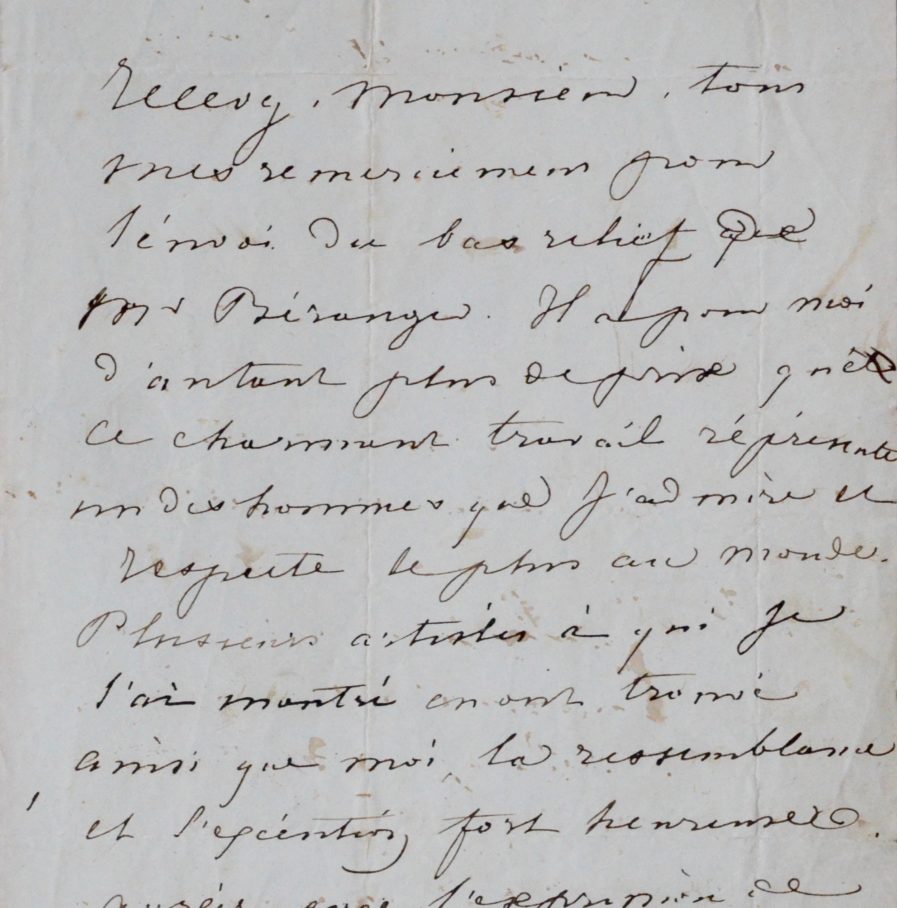 Recevez, Monsieur, tous
mes remerciemens pour
l'énvoi du bas relief de
Mr Béranger. Il a pour moi
d'autant plus de prix que
ce charmant travail réprésente
un des hommes que J'admire et
respecte le plus au monde.
Plusieurs artistes à qui Je
l'ai montré en ont trouvé
ainsi que moi, la ressemblance
et l'exécution fort heureuses.
avec l'expression de